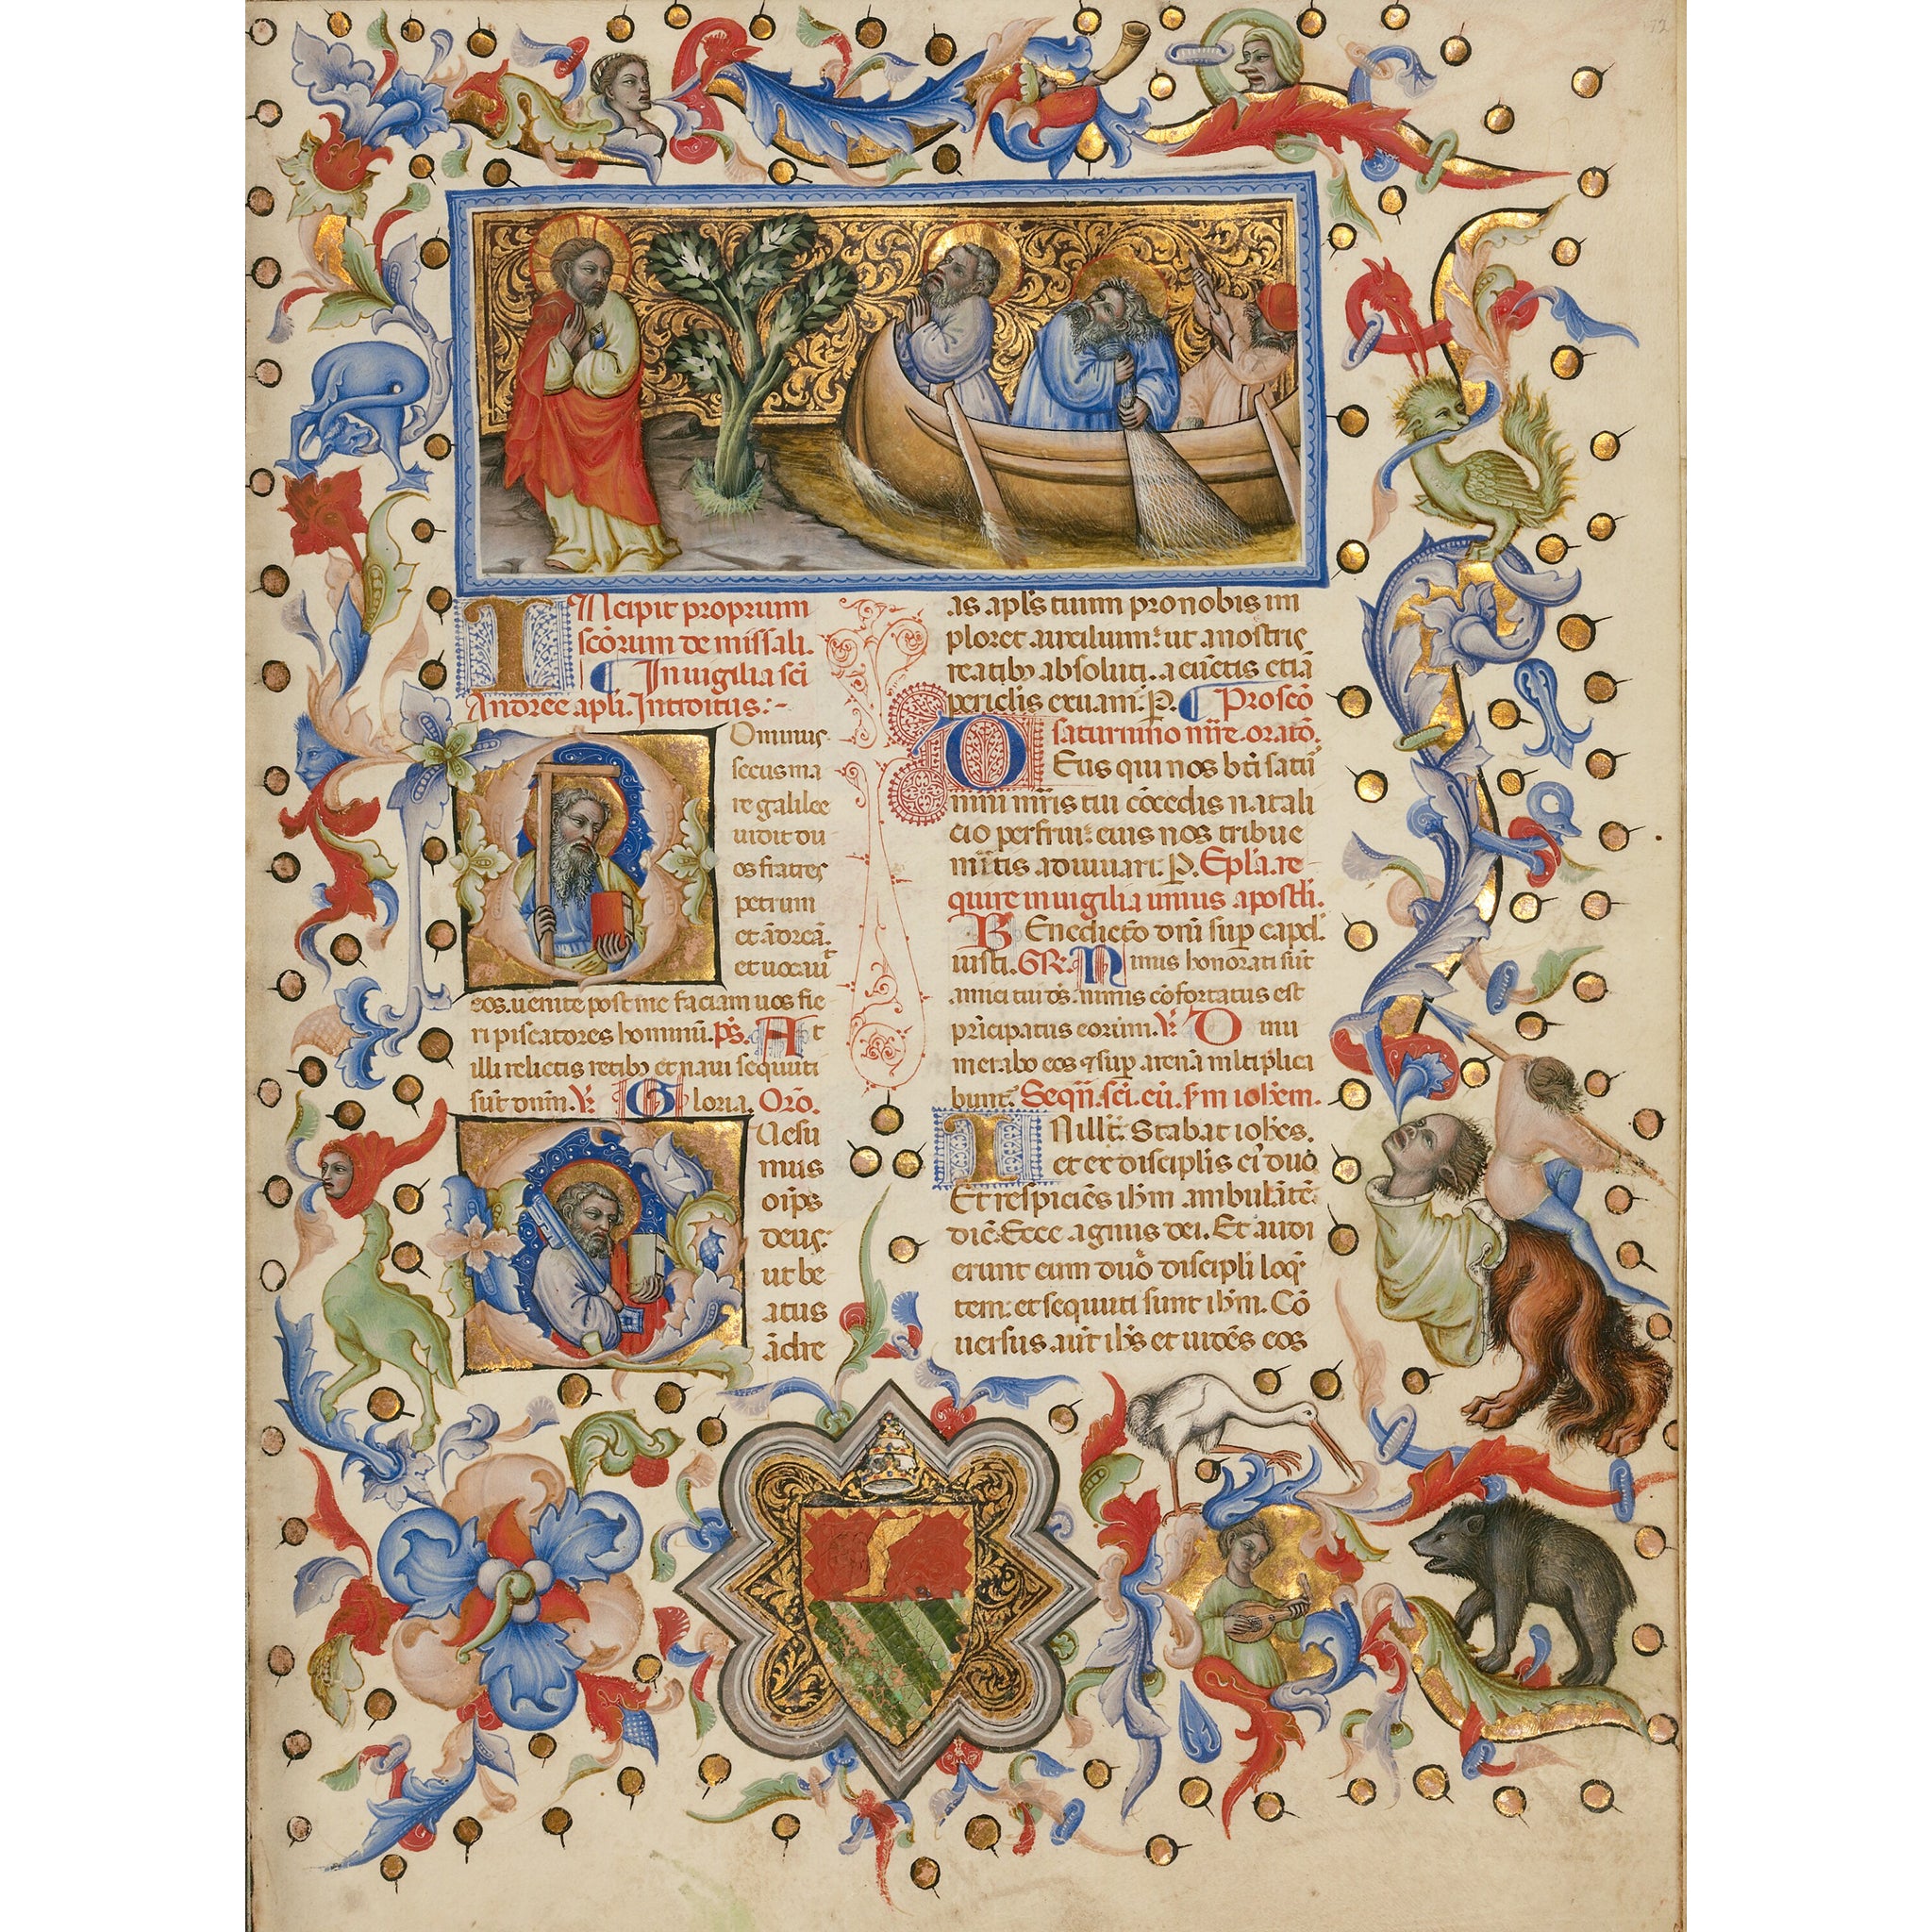 INcipit proprium
scōrum de missali.
In uigilia sci
Andree apli. Introitus:-
Ominus
secus ma
re galilee
uidit du
os fratres
petrum
et ādreā.
et uocauit
eos. uenite post me faciam uos fie
ri piscatores hominū. p̄s. At
illi relictis retibꝫ et naui sequuti
sūt dnm̄. V̄. Gloria. Orō.
Uesu
mus
oīps
deus:
ut be
atus
ādre
as apl̄s tuum pro nobis im
ploret auxilium: ut a nostris
reatibꝫ absoluti. a cūctis etiā
periclis exuam̄. P̄. Pro scō
saturnino mr̄e. oratō.
DEus qui nos bt̄i satur
nini mr̄is tui cōcedis natali
cio perfrui: eius nos tribue
mr̄itis adiuuari. P̄. Epl̄a. re
quire in uigilia unius apostl̄i.
BEnedictō dn̄i sup caput
iusti. GR̄. Nimis honorati sūt
amici tui ds̄. nimis cōfortatus est
prīcipatus eorum. V̄. Dinu
merabo eos et sup arenā ml̄tiplica
bunt. Seqū. sci. eū. s̄m ioh̄em.
IN ill̄t. Stabat ioh̄es.
et ex discipl̄is ei᾽ duo
Et respiciēs ih̄m ambulātē:
dic̄. Ecce agnus dei. Et audi
erunt eum duo discipl̄i loq̄
tem: et sequuti sunt ih̄m. Cō
uersus aut̄ ih̄s et uidēs eos